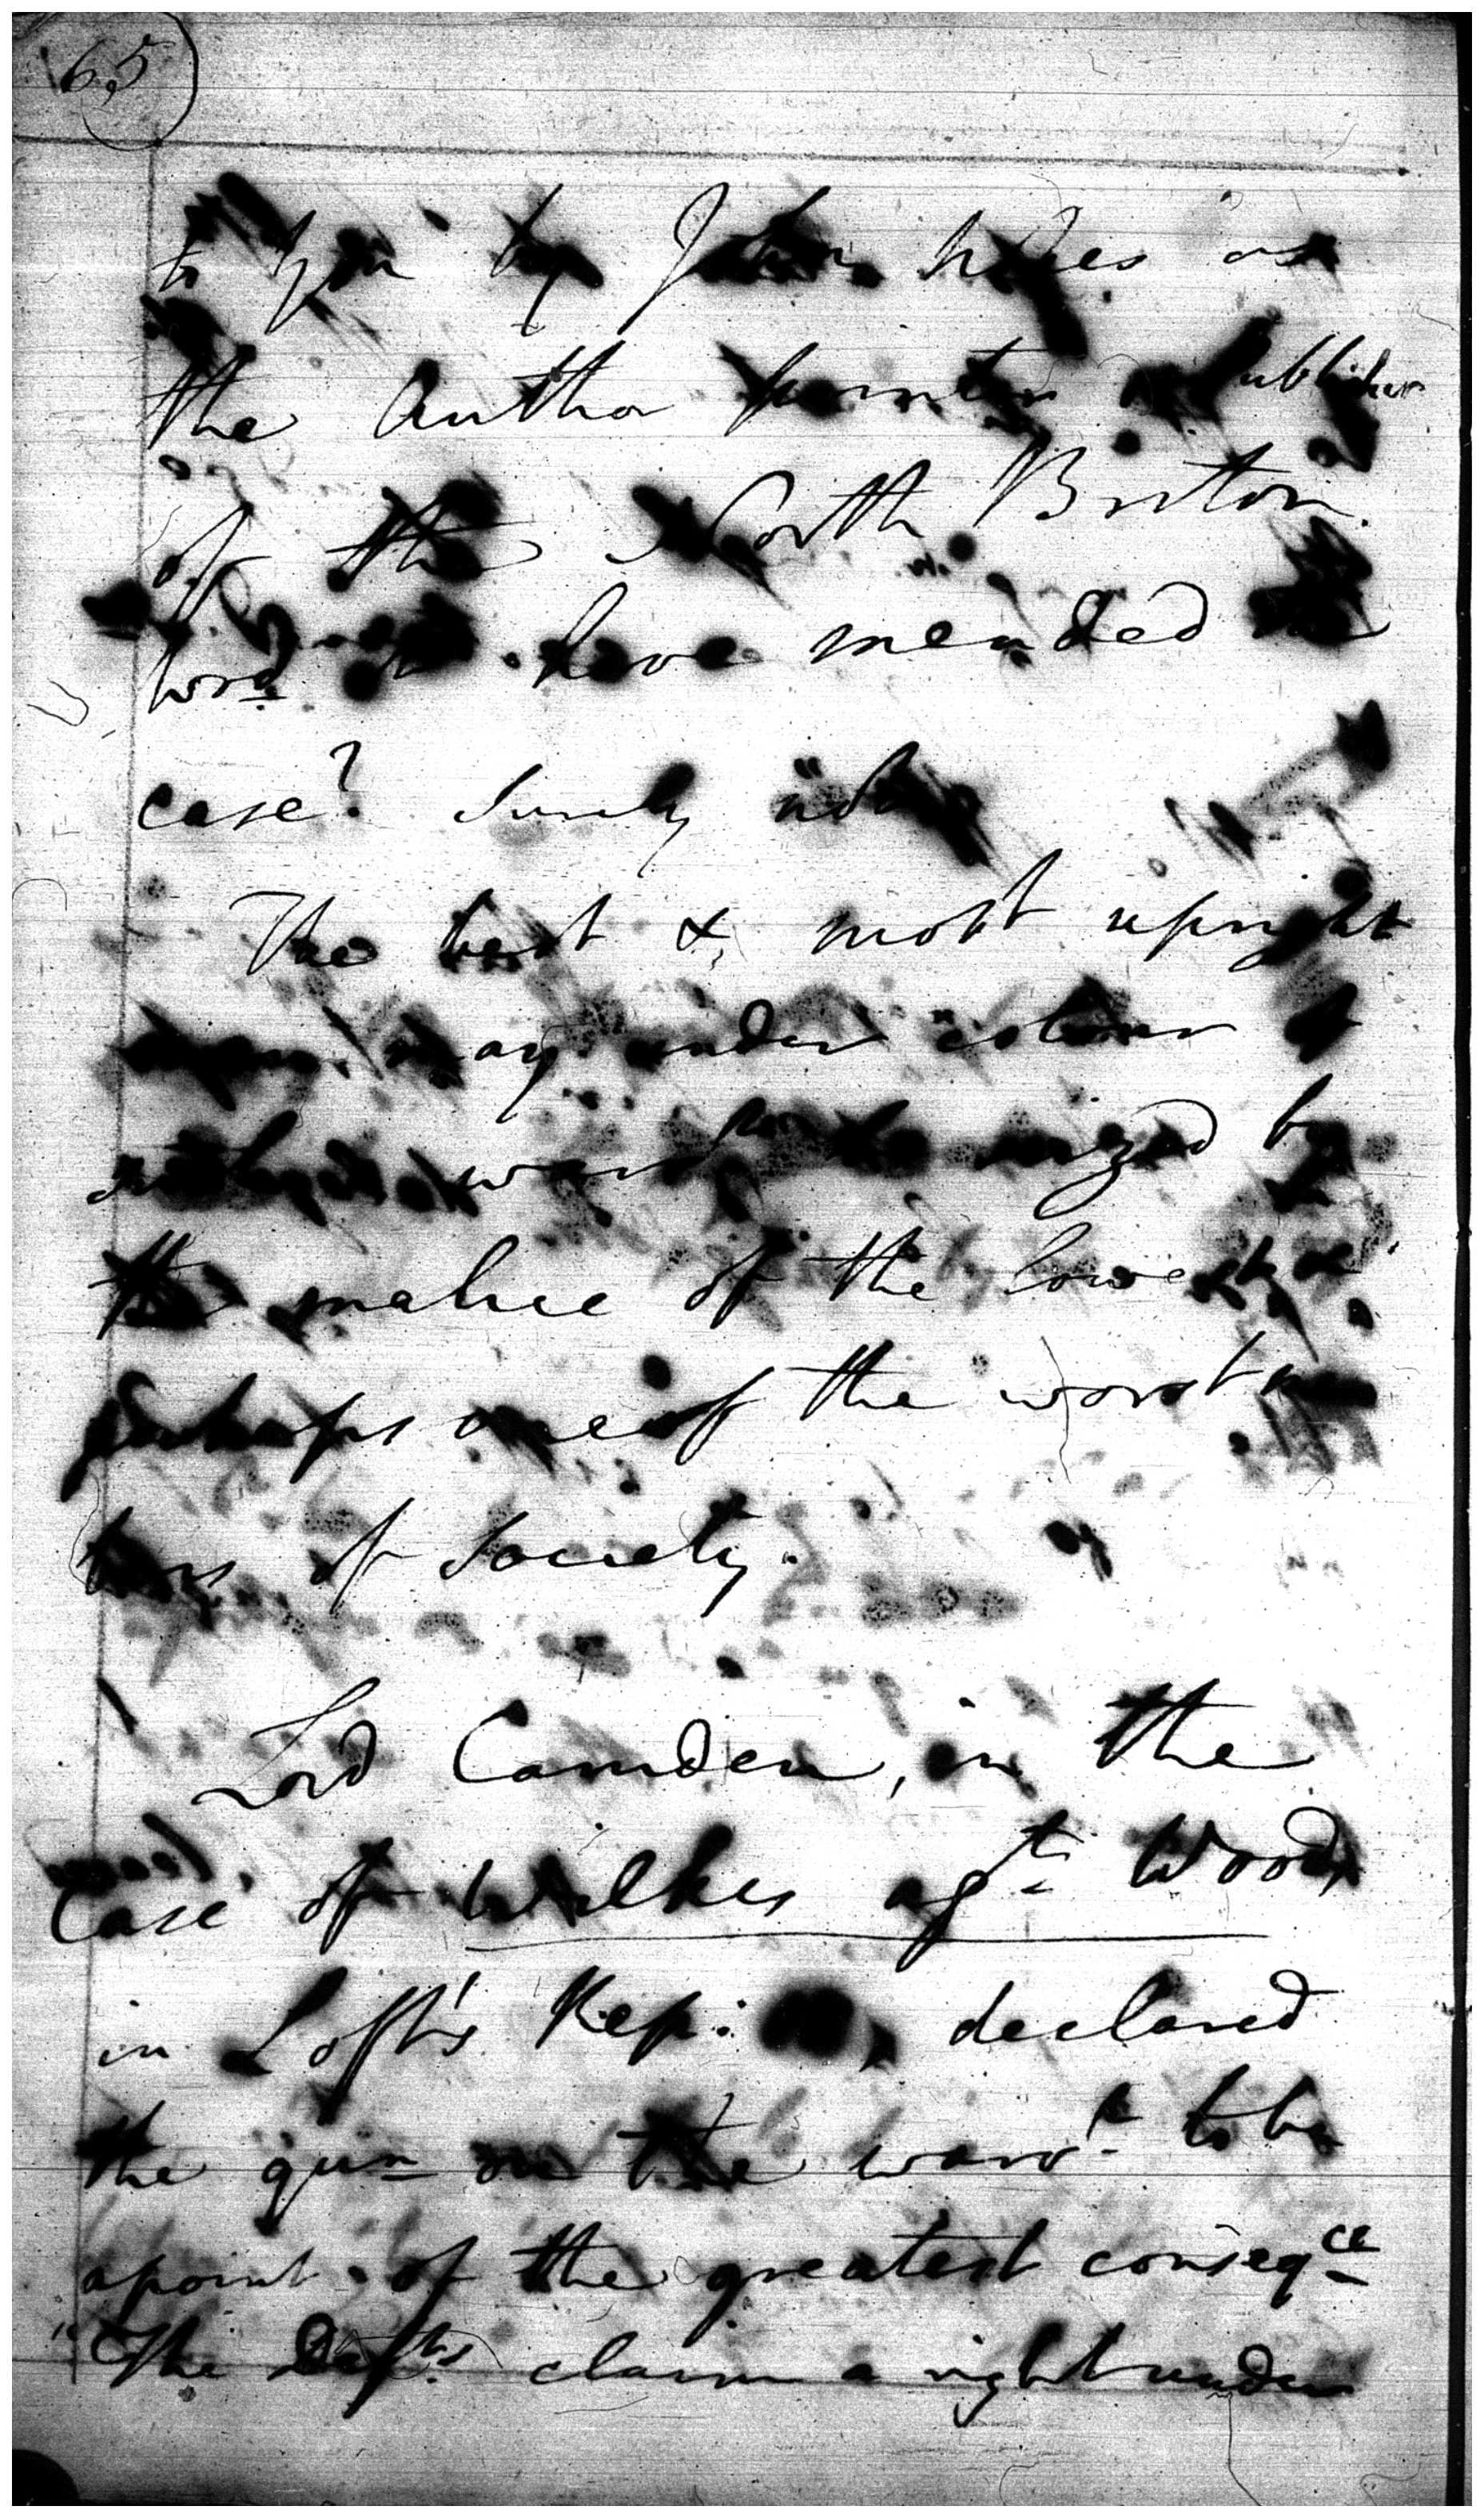 65
to you by John Stiles as
the Author printer or publisher
of the North Briton.
wod. have mended the
case? Surely not
The best & most upright
men may under colour of
such a warr be seized by
the malice of the lowest &
perhaps one of the worst
of Society.
Lord Camden, in the
Case of Wilkes agt. Wood,
in Lofft's Rep: declared
the qun on the warrt. to be
a point of the greatest conseqce
"The Defts. claim a right under